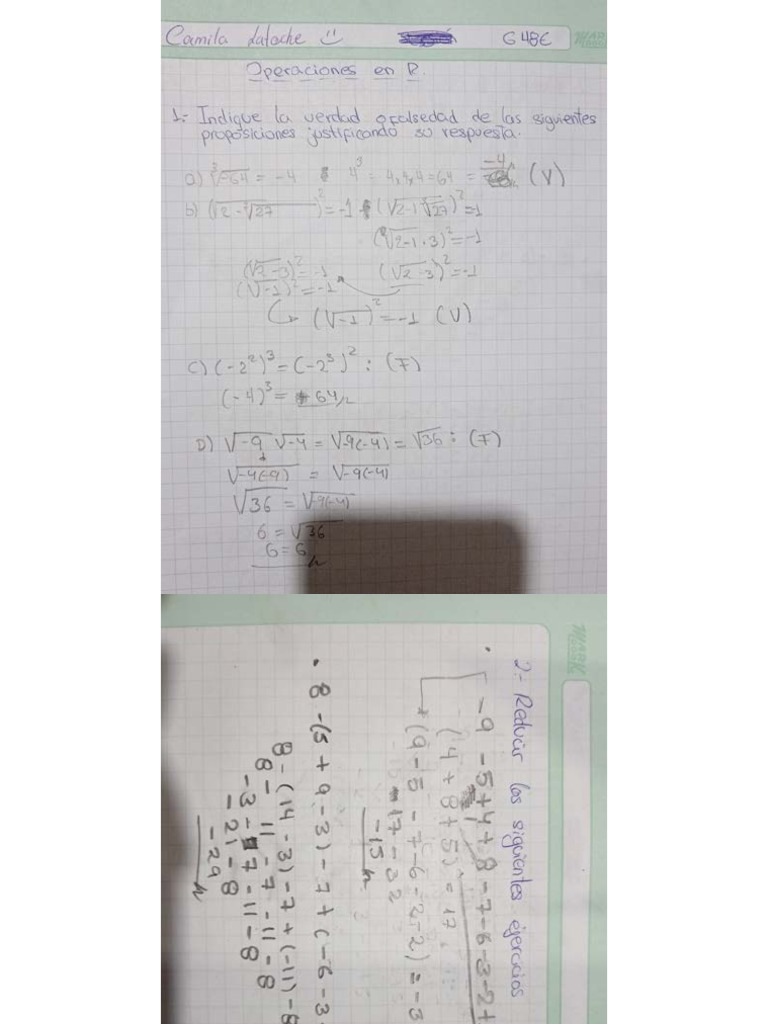 Camila Latoche G4BE
Operaciones en R.
1.- Indique la verdad o falsedad de las siguientes
proposiciones justificando su respuesta.
a) ∛-64 = -4 4³ = 4.4.4 = 64 = -4 (V)
b) (√2-∛27)² = -1 (√2-1∛27)² = -1
(√2-1·3)² = -1
(√2-3)² = -1 (√2-3)² = -1
(√-1)² = -1
(√-1)² = -1 (V)
c) (-2²)³ = (-2³)² : (F)
(-4)³ = 64
D) √-9 √-4 = √-9(-4) = √36 : (F)
√-4(-9) = √-9(-4)
√36 = √-9(-4)
6 = √36
6 = 6
2.- Reducir los siguientes ejercicios
• -9 -5+4+8-7-6-3-2+
(4+8+5) = 17
(9-5-7-6-2-2) = -3
17-32
-15
• 8-(5+9-3)-7+(-6-3
8-(14-3)-7+(-11)-8
8-11-7-11-8
-3-7-11-8
-21-8
-29